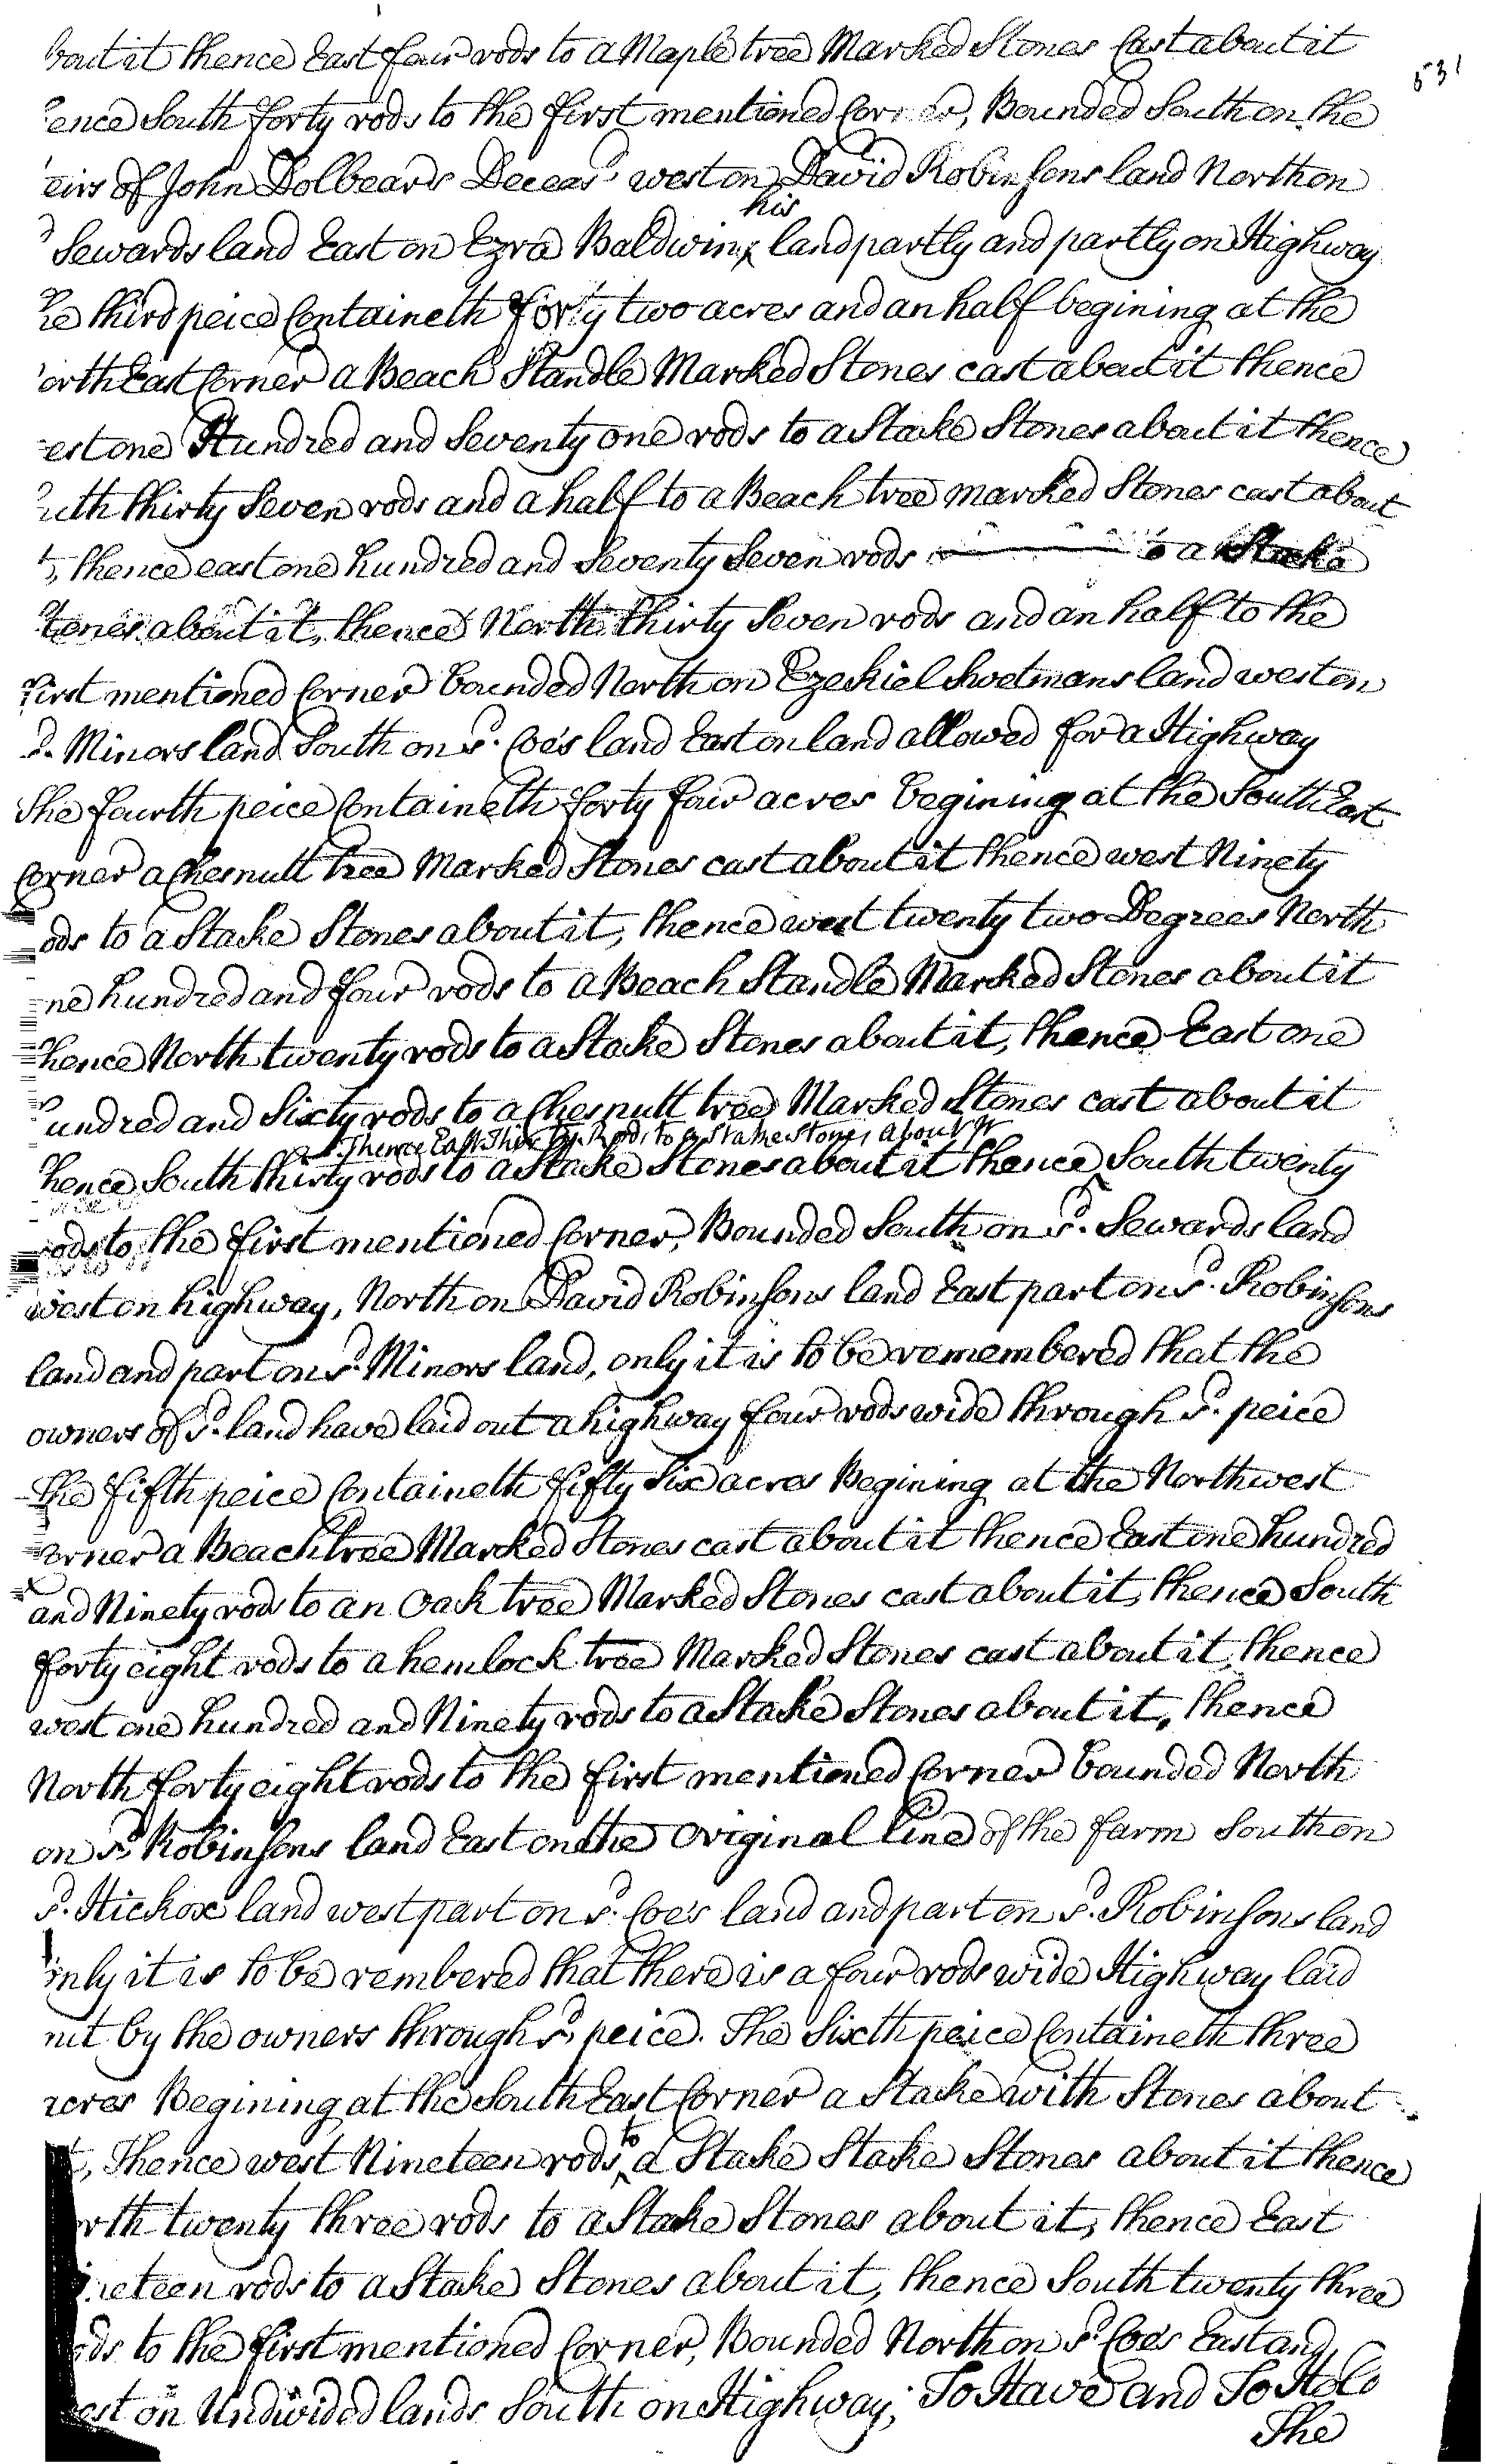 531
bout it thence East four rods to a Maple tree Marked Stones Cast about it
ence South forty rods to the first mentioned Corner, Bounded South on the
eirs of John Dolbears Deceasd west on David Robinsons land North on
d Sewards land East on Ezra Baldwin his land partly and partly on Highway
he third peice Containeth forty two acres and an half begining at the
orth East Corner a Beach Standle Marked Stones cast about it thence
est one Hundred and Seventy one rods to a Stake Stones about it thence
uth thirty Seven rods and a half to a Beach tree marked Stones cast about
t, thence east one hundred and Seventy Seven rods to a Stake
tones about it, thence North thirty Seven rods and an half to the
first mentioned Corner bounded North on Ezekiel land west on
d. Minors land South on sd. Coe's land East on land allowed for a Highway
The fourth peice Containeth forty four acres begining at the South East
Corner a Chesnutt tree Marked Stones cast about it thence west Ninety
ods to a Stake Stones about it, thence west twenty two Degrees North
ne hundred and four rods to a Beach Standle Marked Stones about it
hence North twenty rods to a Stake Stones about it, thence East one
undred and Sixty rods to a Chesnutt tree Marked Stones cast about it
Thence East Thirty Rods to a Stake Stones about it
hence South thirty rods to a Stake Stones about it thence South twenty
rods to the first mentioned Corner, Bounded South on sd. Sewards land
west on highway, North on David Robinsons land East part on sd. Robinsons
land and part on sd. Minors land, only it is to be remembered that the
owners of sd. land have laid out a highway four rods wide through sd. peice
The fifth peice Containeth fifty Six acres Begining at the Northwest
orner a Beach tree Marked Stones cast about it thence East one hundred
and Ninety rods to an Oak tree Marked Stones cast about it, thence South
forty eight rods to a hemlock tree Marked Stones cast about it, thence
west one hundred and Ninety rods to a Stake Stones about it, thence
North forty eight rods to the first mentioned Corner bounded North
on sd. Robinsons land East on the Original line of the farm South on
sd. Hickox land west part on sd. Coe's land and part on sd. Robinsons land
only it is to be rembered that there is a four rods wide Highway laid
out by the owners through sd. peice. The Sixth peice Containeth three
acres Begining at the South East Corner a Stake with Stones about
it, Thence west Nineteen rods to a Stake Stake Stones about it thence
rth twenty three rods to a Stake Stones about it, thence East
ineteen rods to a Stake Stones about it, thence South twenty three
ods to the first mentioned Corner, Bounded North on sd. Coe's East and
est on Undivided lands South on Highway; To Have and To Hold
The